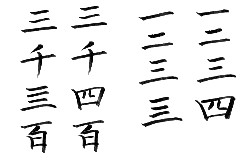 一二三四
一二三亖
三千四百
三千亖百